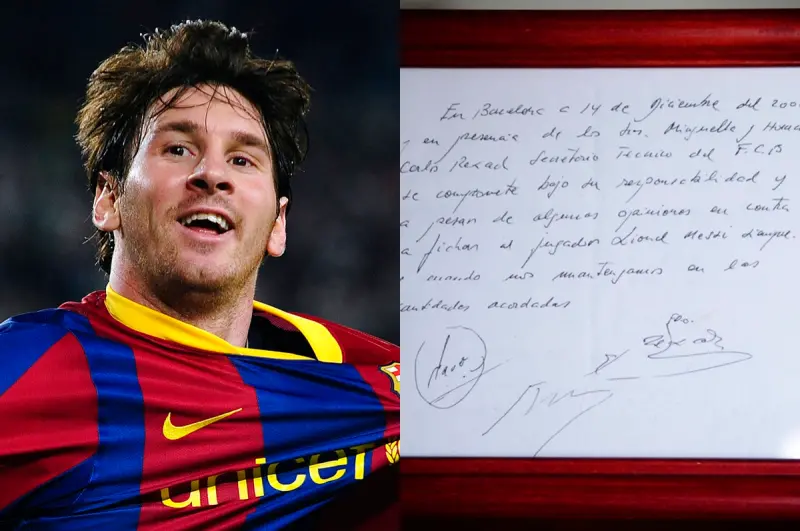 unicef
En Barcelona a 14 de Diciembre del 200
y en presencia de los Srs. Minguella y Horacio
Carlos Rexach Secretario Técnico del F.C.B
se compromete bajo su responsabilidad y
a pesar de algunas opiniones en contra
a fichar al jugador Lionel Messi siempre
y cuando nos mantengamos en las
cantidades acordadas